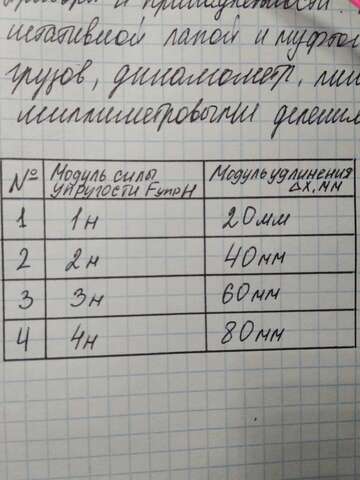 приборы и принадлежности:
штативной лапой и муфтой
грузов, динамометр, лин
миллиметровыми делениям
№ Модуль силы упругости Fупр Н Модуль удлинения Δx, мм
1 1н 20мм
2 2н 40мм
3 3н 60мм
4 4н 80мм